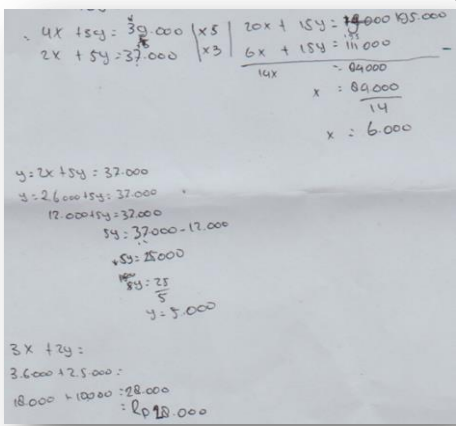 4x + 5y = 39.000 | x5 | 20x + 15y = 195.000
2x + 5y = 37.000 | x3 | 6x + 15y = 111.000 -
14x = 84.000
x = 84.000
14
x = 6.000
y = 2x + 5y = 37.000
y = 2.6000 + 5y = 37.000
12.000 + 5y = 37.000
5y = 37.000 - 12.000
5y = 25000
5y = 25
5
y = 5.000
3x + 2y =
3.6000 + 2.5.000 =
18.000 + 10.000 = 28.000
= Rp 28.000